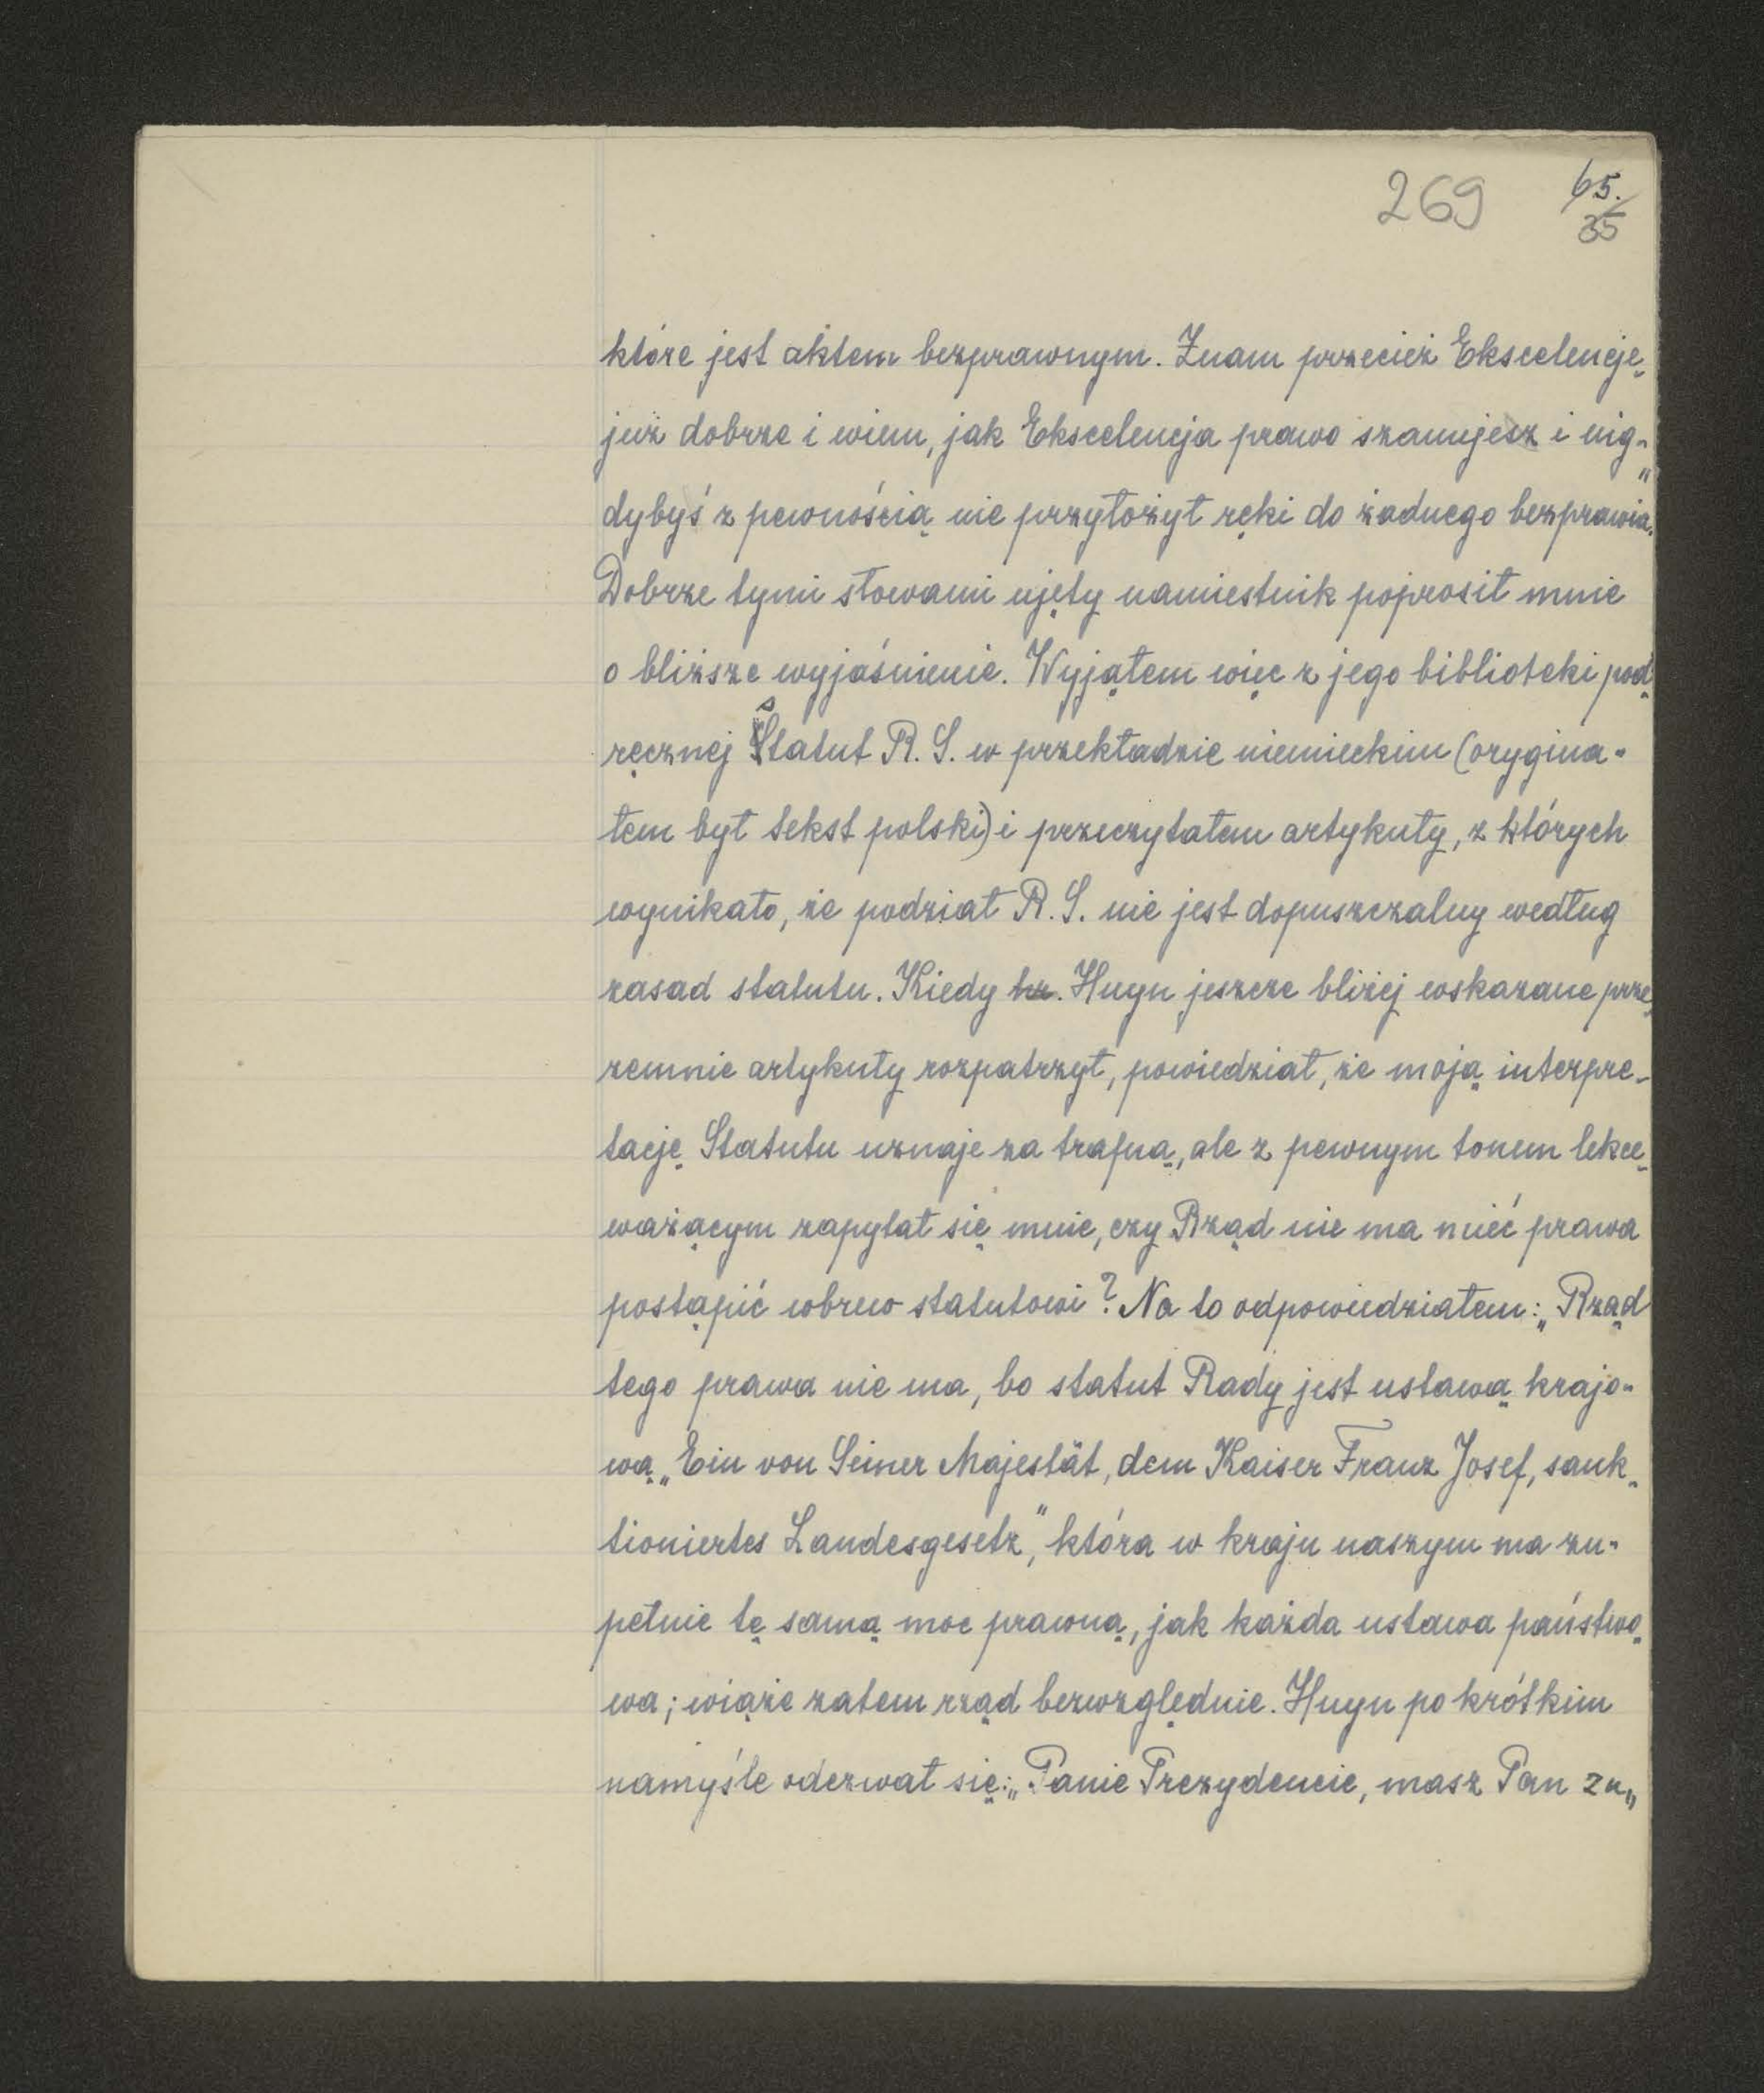 269
65./35
które jest aktem bezprawnym. Znam przecież Ekscelencję
już dobrze i wiem, jak Ekscelencja prawo szanujesz i nig-
dybyś z pewnością nie przyłożył ręki do żadnego bezprawia."
Dobrze tymi słowami ujęty namiestnik poprosił mnie
o bliższe wyjaśnienie. Wyjąłem więc z jego biblioteki pod-
ręcznej Statut R. S. w przekładzie niemieckim (orygina-
łem był tekst polski) i przeczytałem artykuły, z których
wynikało, że podział R. S. nie jest dopuszczalny według
zasad statutu. Kiedy hr. Huyn jeszcze bliżej wskazane prze-
zemnie artykuły rozpatrzył, powiedział, że moją interpre-
tację Statutu uznaje za trafną, ale z pewnym tonem lekce-
ważącym zapytał się mnie, czy Rząd nie ma mieć prawa
postąpić wbrew statutowi? Na to odpowiedziałem: „Rząd
tego prawa nie ma, bo statut Rady jest ustawą krajo-
wą „Ein von Seiner Majestät, dem Kaiser Franz Josef, sank-
tioniertes Landesgesetz", która w kraju naszym ma zu-
pełnie tę samą moc prawną, jak każda ustawa państwo-
wa; wiąże zatem rząd bezwzględnie. Huyn po krótkim
namyśle odezwał się: „Panie Prezydencie, masz Pan zu-